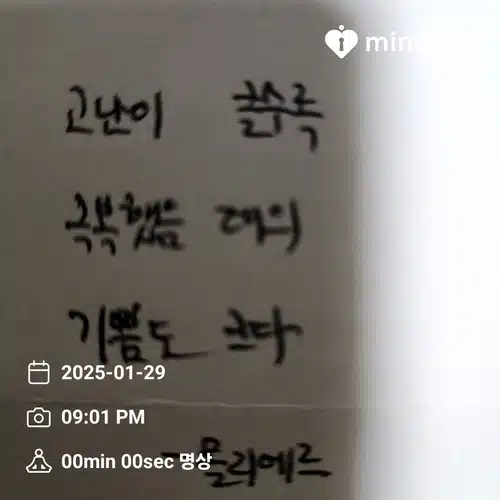 min
고난이 클수록
극복했을 때의
기쁨도 크다
2025-01-29
09:01 PM
00min 00sec 명상
-몰리에르